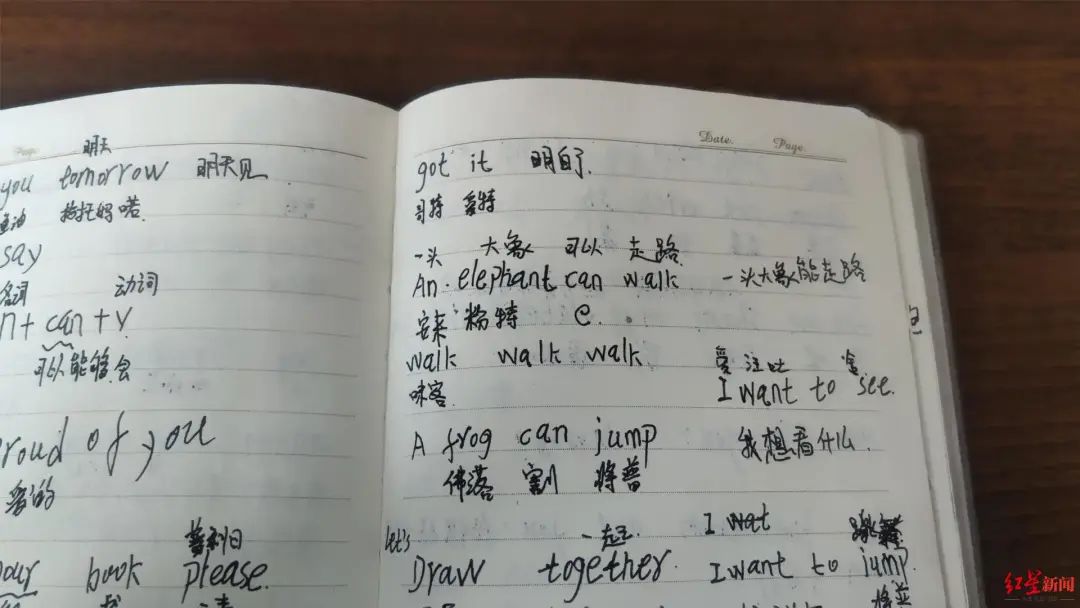 明天
you tomorrow 明天见
say
名词 动词
n+can+v
可以能够.会
proud of you
book please.
Date. Page.
got it 明白了.
哥特 爱特
一头 大象 可以 走路
An elephant can walk 一头大象能走路
安来粉特 e.
walk walk walk.
味客.
爱 注吐
I want to see.
A frog can jump 我想看什么.
佛落 将普
let's 一起 I wat
Draw together. I want to jump.
将普
红星新闻